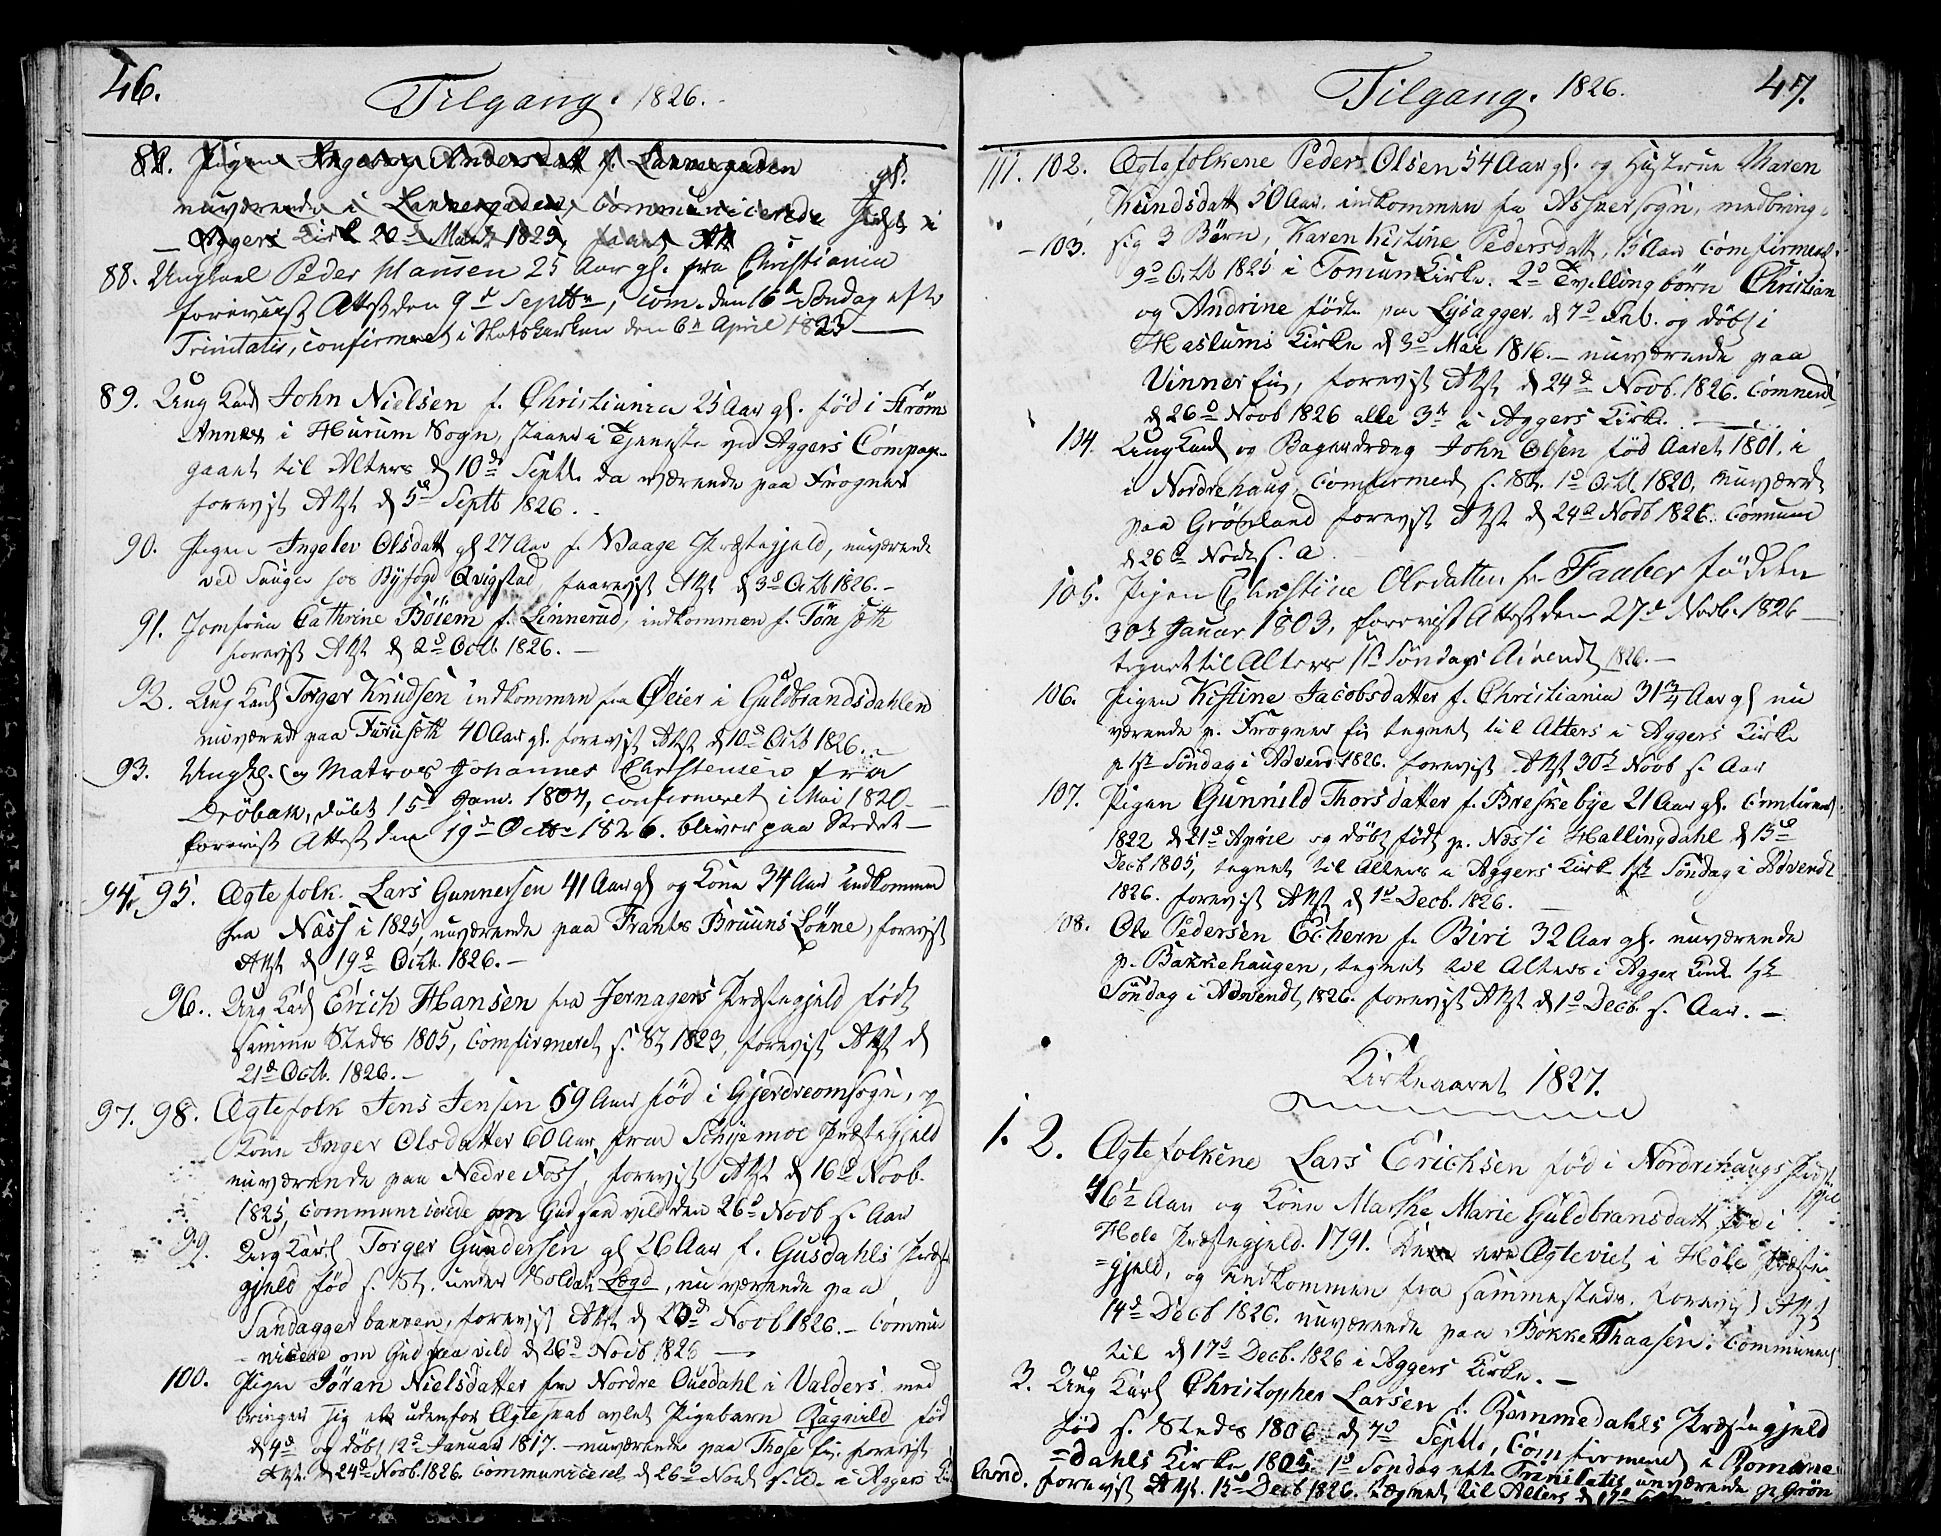 46.
Tilgang. 1826.
88. Pigen Ingeborg Andersdatt f. Lannergaden gl.
nuværende i Lannergaden, Communicerede sidst i
Aggers Kirk 20d Martz 1825, faaet Att
88. Ungkarl Peder Hansen 25 Aar gl. fra Christiania
foreviist Attest den 9d Septbr, com. den 16d Søndag efter
Trinitatis, confirmeret i Slotskirken den 6te April 1823
89. Ung Karl John Nielsen f. Christiania 25 Aar gl. fød i Strøm
Annex i Hurum Sogn, staaer i Tjeneste ved Aggers Compag.
gaaet til Alters d 10de Septb. da værende paa Frogner
forevist Attst d 5d Septb 1826.
90. Pigen Ingelev Olsdatt gl 27 Aar f. Waage Præstegjeld, nuværende
ved Sauger hos Byfogd Qvigstad, forevist Attst d 3d Octb 1826.
91. Jomfrue Cathrine Böiem f. Linnerud, indkommen f. Tönseth
forevist Attst d 2d Octb. 1826.
92. Ung Karl Torger Knudsen indkommen fra Øeier i Guldbrandsdahlen
nuværende paa Furuseth 40 Aar gl. forevist Attst d 10d Octb 1826.
93. Ungk. og Matros Johannes Christensen fra
Dröbak, døbt 15d Janv. 1804, confirmeret i Mai 1820
forevist Attest den 19d Octbr 1826. bliver paa Stedet
94. 95. Ægtefolk. Lars Gunnersen 41 Aar gl og Kone 34 Aar indkommen
fra Næss i 1825, nuværende paa Frants Bruuns Lökke, forevist
Attst d 19d Octb. 1826.
96. Ung Karl Erich Hansen fra Jernagers Præstegjeld født
samme Steds 1805, Comfirmeret s. St 1823, forevist Attst d
21d Octb. 1826.
97. 98. Ægtefolk Jens Jensen 59 Aar fød i Gjerdreom Sogn, og
Kone Inger Olsdatter 60 Aar fra Schjemoe Præstegjeld
nuværende paa Nedre Foss, forevist Attst d 16d Novb.
1825, Communicerede om Gud saa vil den 26d Novb s. Aar
99. Ung Karl Torger Gundersen gl 26 Aar f. Gusdahls Præste
gjeld fød s. St. under Soldat Lægd, nuværende paa
Sandaggerbakken, forevist Attst d 20de Novb 1826. Commu
nicere om Gud saa vild d 26d Novb 1826
100. Pigen Jöran Nielsdatter fra Nordre Ouredahl i Valders med
bringer sig et udenfor Ægteskab avlet Pigebarn Ragnild fød
d 4d og døbt 12d Januar 1817. nuværende paa Those Ei; forevist
Attst. d 24d Novb. 1826. Communiceret d 26d Novb s. A. i Aggers K
Tilgang. 1826. 47.
111. 102. Ægtefolkene Peder Olsen 54 Aar gl. og Hustrue Maren
Knudsdatt 50 Aar. indkommen fra Askersogn, medbring
103. sig 3 Børn, Karen Kistine Pedersdatt, 15 Aar Comfirmert
9d Octb 1825 i Tonum Kirke. 2d Tvillingbørn Christian
og Andrine fødte paa Lysagger d 7d Feb. og døbt i
Haslums Kirke d 3d Mai 1816. nuværende paa
Vinneren, forevist Attst d 24d Novb. 1826. Communi
d 26d Novb 1826 alle 3de i Aggers Kirke.
104. Ung Karl og Bagerdreng John Olsen fød Aaret 1801. i
i Nordrehaug, Comfirmert s. St. 1d Octb. 1820, nuværende
paa Grönland forevist Attst d 24d Novb 1826. Commun
d 26d Novb s. a.
105. Pigen Christine Olsdatter fra Tauber född den
30te Januar 1803, forevist Attest den 27d Novb. 1826
tegnet til Alters 1ste Söndags Advendt 1826.
106. Pigen Kistine Jacobsdatter f. Christiania 31 3/4 Aar gl nu
værende p. Frogner Ei tegnet til Alters i Aggers Kirke
p. 1ste Söndag i Advend 1826. forevist Attst 30te Novb s. Aar
107. Pigen Gunnild Thorsdatter f. Breskebye 21 Aar gl. Comfirmert
1822 d 21d Aprile og døbt født p. Næss i Hallingdahl d 15d
Decb 1805, tegnet til Alters i Aggers Kirk 1ste Söndag i Advendt
1826. forevist Attst d 1d Decb. 1826.
108. Ole Pedersen Echern f. Biri 32 Aar gl. nuværende
p. Bakkehaugen, tegnet til Alters i Agger Kirk 1ste
Söndag i Advendt 1826. forevist Attst d 1d Decb. s. Aar.
Kirkeaaret 1827.
1. 2. Ægtefolkene Lars Erichsen fød i Nordrehaugs Præstegjel
46 1/2 Aar og Kone Marthe Marie Guldbransdatt fød i
Hole Præstegjeld. 1791. De ere Ægteviet i Hole Præste-
gjeld, og indkommen fra sammesteds. forevist Attst
14d Decb 1826. nuværende paa Bokke Thaasen. Communi
til d 17d Decb. 1826 i Aggers Kirke.
3. Ung Karl Christopher Larsen f. Rommedahls Præstegjeld
fød s. Steds 1806 d 7d Septb, Comfirmeret i Romme
dahls Kirke 1825. 1d Söndag efter Trinitatis nuværende p. Grön
land. forevist Attst. 15d Decb 1826. tegnet til Alters d 17d